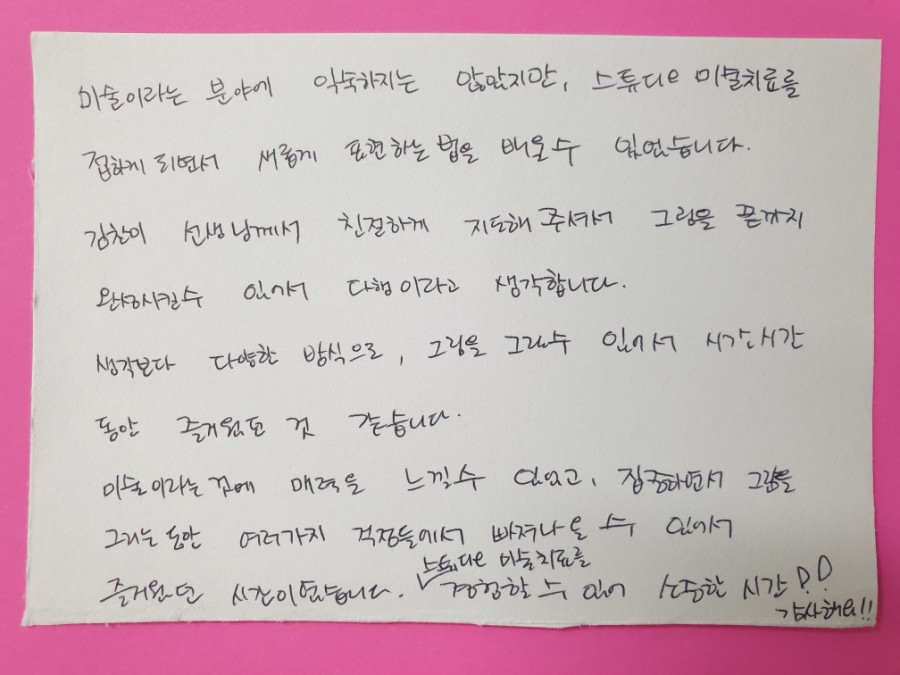 미술이라는 분야에 익숙하지는 않았지만, 스튜디오 미술치료를
접하게 되면서 새롭게 표현하는 법을 배울수 있었습니다.
김찬이 선생님께서 친절하게 지도해 주셔서 그림을 끝까지
완성시킬수 있어서 다행이라고 생각합니다.
생각보다 다양한 방식으로, 그림을 그릴수 있어서 시간시간
동안 즐거웠던 것 같습니다.
미술이라는것에 매력을 느낄수 있었고, 집중하면서 그림을
그리는 동안 여러가지 걱정들에서 빠져나올 수 있어서
즐거웠던 시간이였습니다. 스튜디오 미술치료를 경험할 수 있어 소중한 시간!!
감사해요!!